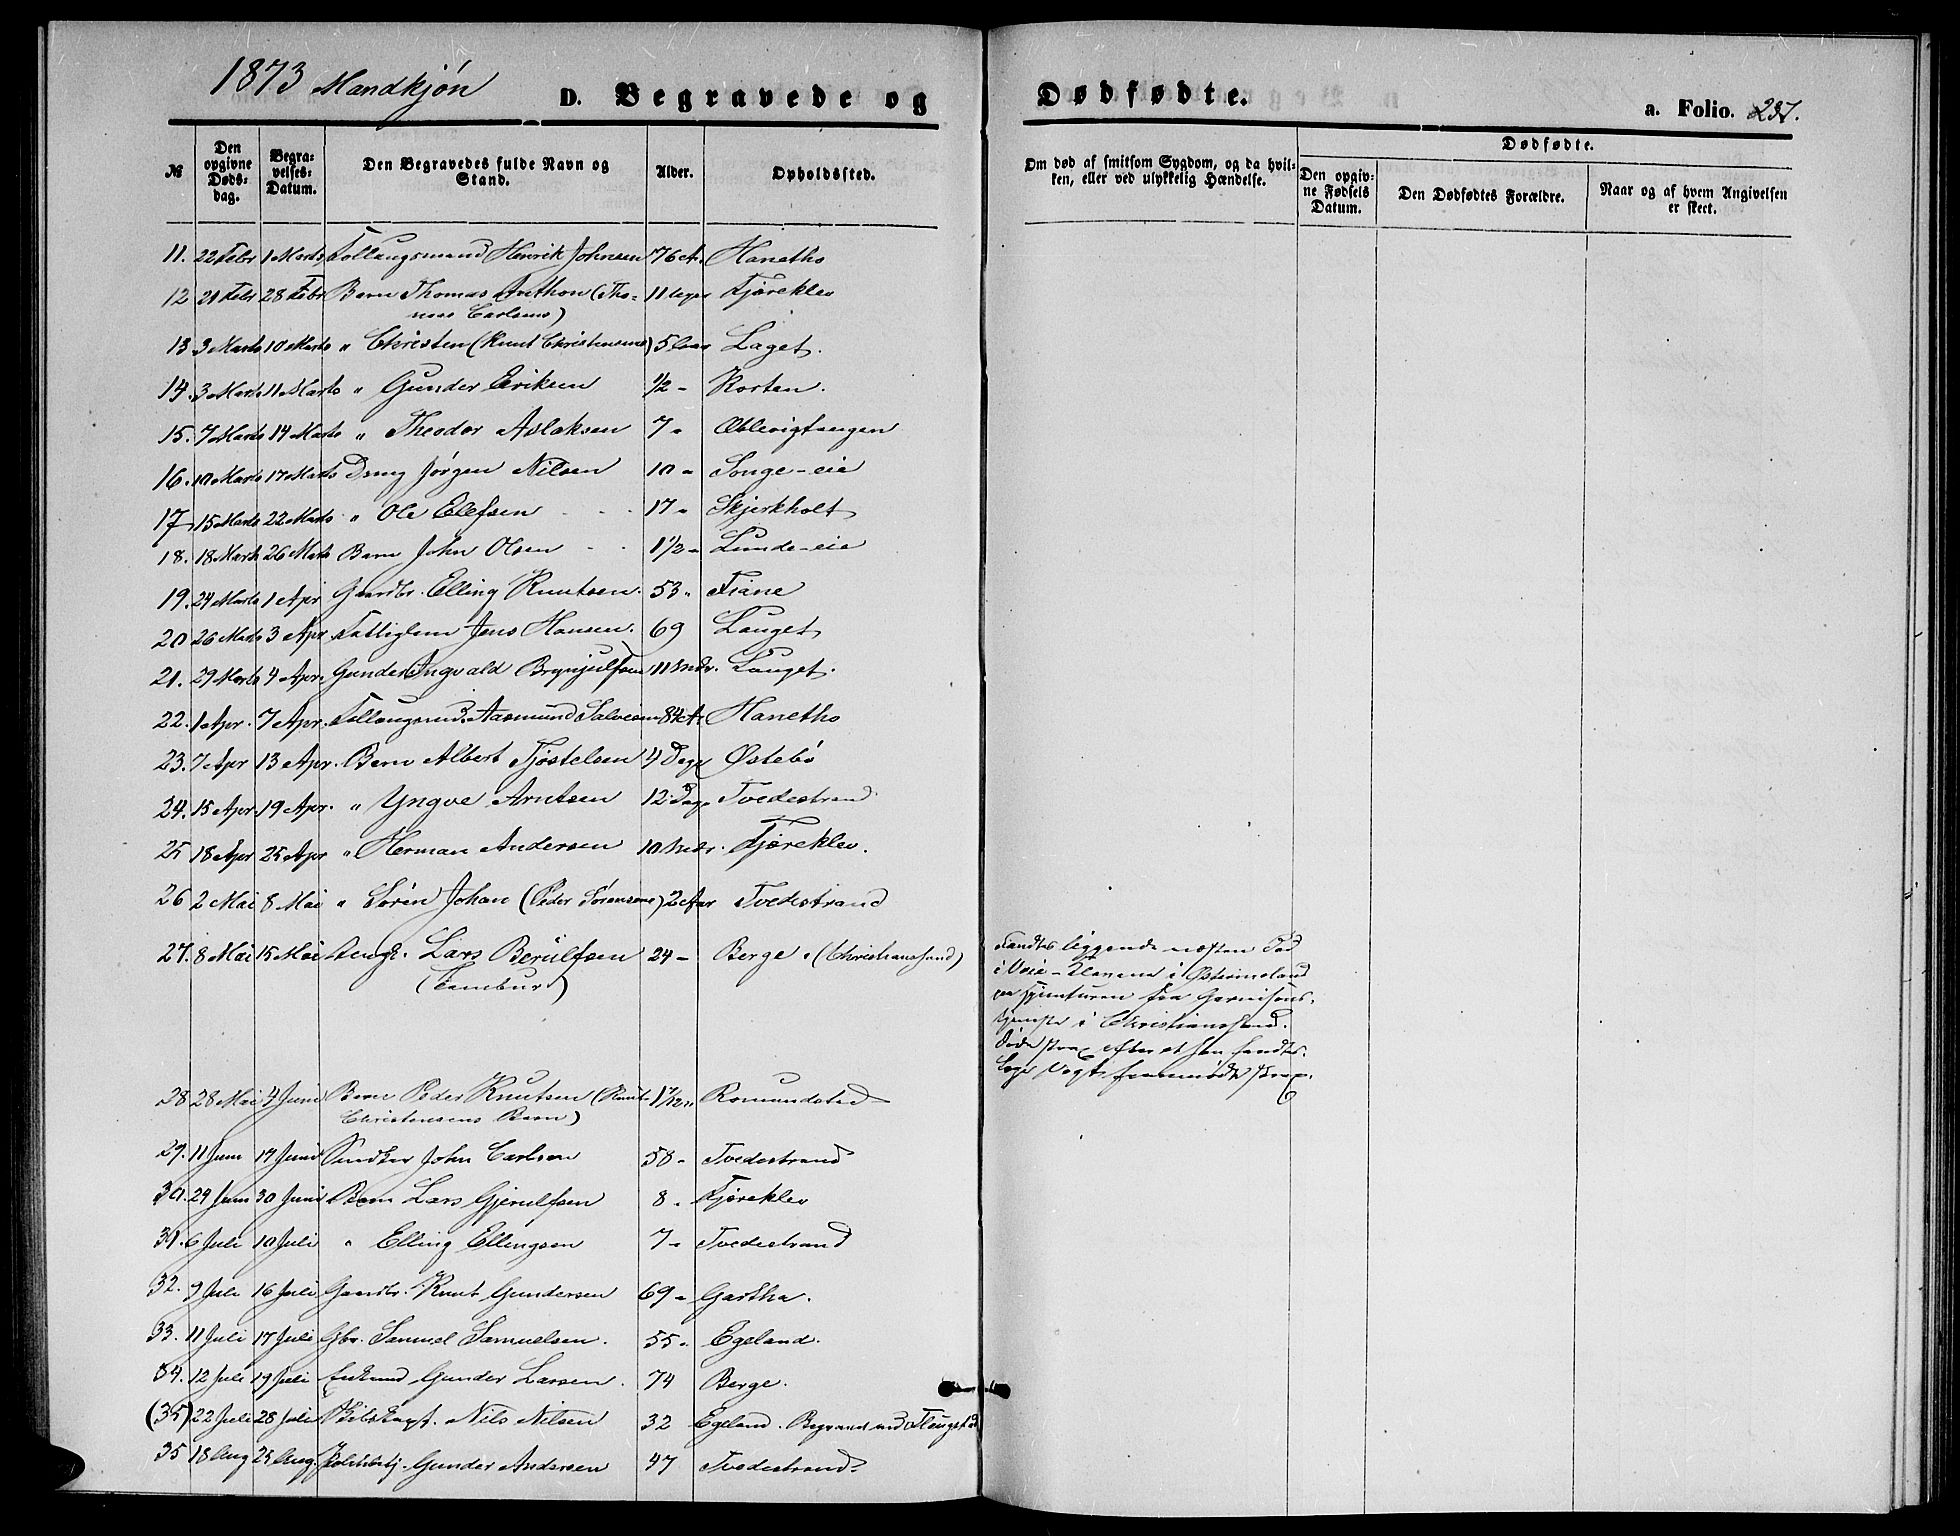 1873 Mandkjøn
D. Begravede og Dødfødte.
a. Folio. 237.
№
Den opgivne Døds-dag.
Begra-velses-Datum.
Den Begravedes fulde Navn og Stand.
Alder.
Opholdssted.
Om død af smitsom Sygdom, og da hvil-ken, eller ved ulykkelig Hændelse.
Dødfødte.
Den opgiv-ne Fødsels Datum.
Den Dødfødtes Forældre.
Naar og af hvem Angivelsen er skeet.
11. 22 Febr 1 Marts Follaugsmand Henrik Johnsen 76 A. Hanetho
12 21 Febr 28 Febr Barn Thomas (Tho- 11 Uger Fjæreklev
mas Carlsens)
13 3 Marts 10 Marts " Christen (Knut Christensens) 5 Laget.
14. 3 Marts 11 Marts " Gunder Eriksen 1/2 - Rortan.
15. 7 Marts 14 Marts " Theodor Aslaksen 7 " Æblevigtangen
16. 10 Marts 17 Marts Dreng Jørgen Nilsen 10 " Songe-eie
17 15 Marts 22 Marts " Ole Elefsen 17 " Skjerkholt
18. 18 Marts 26 Marts Barn John Olsen 1 1/2 " Lunde-eie
19. 24 Marts 1 Apr Gaardbr. Elling Knutsen. 53 " Fiane
20 26 Marts 3 Apr Fattiglem Jens Hansen. 69 Lauget
21. 29 Marts 4 Apr. Gunder Ingvald Brynjulfsen 11 Mdr. Lauget.
22. 1 Apr. 7 Apr. Follaugsmd. Aasmund Salvesen 84 A. Hanetho
23. 7 Apr 13 Apr. Barn Albert Tjøstelsen 4 Dage Østebø
24. 15 Apr. 19 Apr. " Yngve Arntsen 12 Dage Tvedestrand
25 18 Apr 25 Apr " Herman Andersen 10 Mdr. Fjæreklev.
26 2 Mai 8 Mai " Søren Johan (Peder Sørensens) 2 Aar Tvedestrand
27. 8 Mai 15 Mai Ungk. Lars Berulfsen 24 - Berge. (Christianssand)
(Tambur)
Fandtes liggende næsten Død
i Veie - i
paa fra Garnisons-
tjeneste i Christianssand.
Døde strax efter at han fandtes.
Læge Vogt fremmødte strax.
28 28 Mai 4 Juni Barn Peder Knutsen (Knut 1 7/12 " Romundstad
Christensens Barn)
29. 11 Juni 17 Juni Snedker John Carlsen 58 - Tvedestrand
30. 24 Juni 30 Juni Barn Lars Gjerulfsen 8 " Fjæreklev
31. 6 Juli 10 Juli " Elling Ellingsen 7 " Tvedestrand
32. 9 Juli 16 Juli Gaardbr. Knut Gundersen 69 " Gartha.
33. 11 Juli 17 Juli Gbr. Samuel Samuelsen. 55 " Egeland.
34. 12 Juli 19 Juli Enkemd Gunder Larsen. 74 Berge.
(35) 22 Juli 28 Juli Nils Nilsen 32 Egeland. Begravet ved Flaugstad
35 18 Aug 25 Aug. Gunder Andersen 47 Tvedestrand.